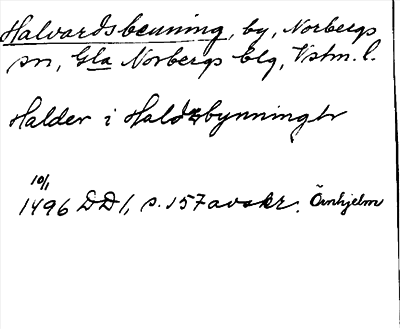 Halvardsbenning, by, Norbergs
sn, Gla Norbergs blg, Vstm. l.
Halder i Haldzbynningbr
10/1
1496 DD 1, s. 157 avskr. Örnhjelm